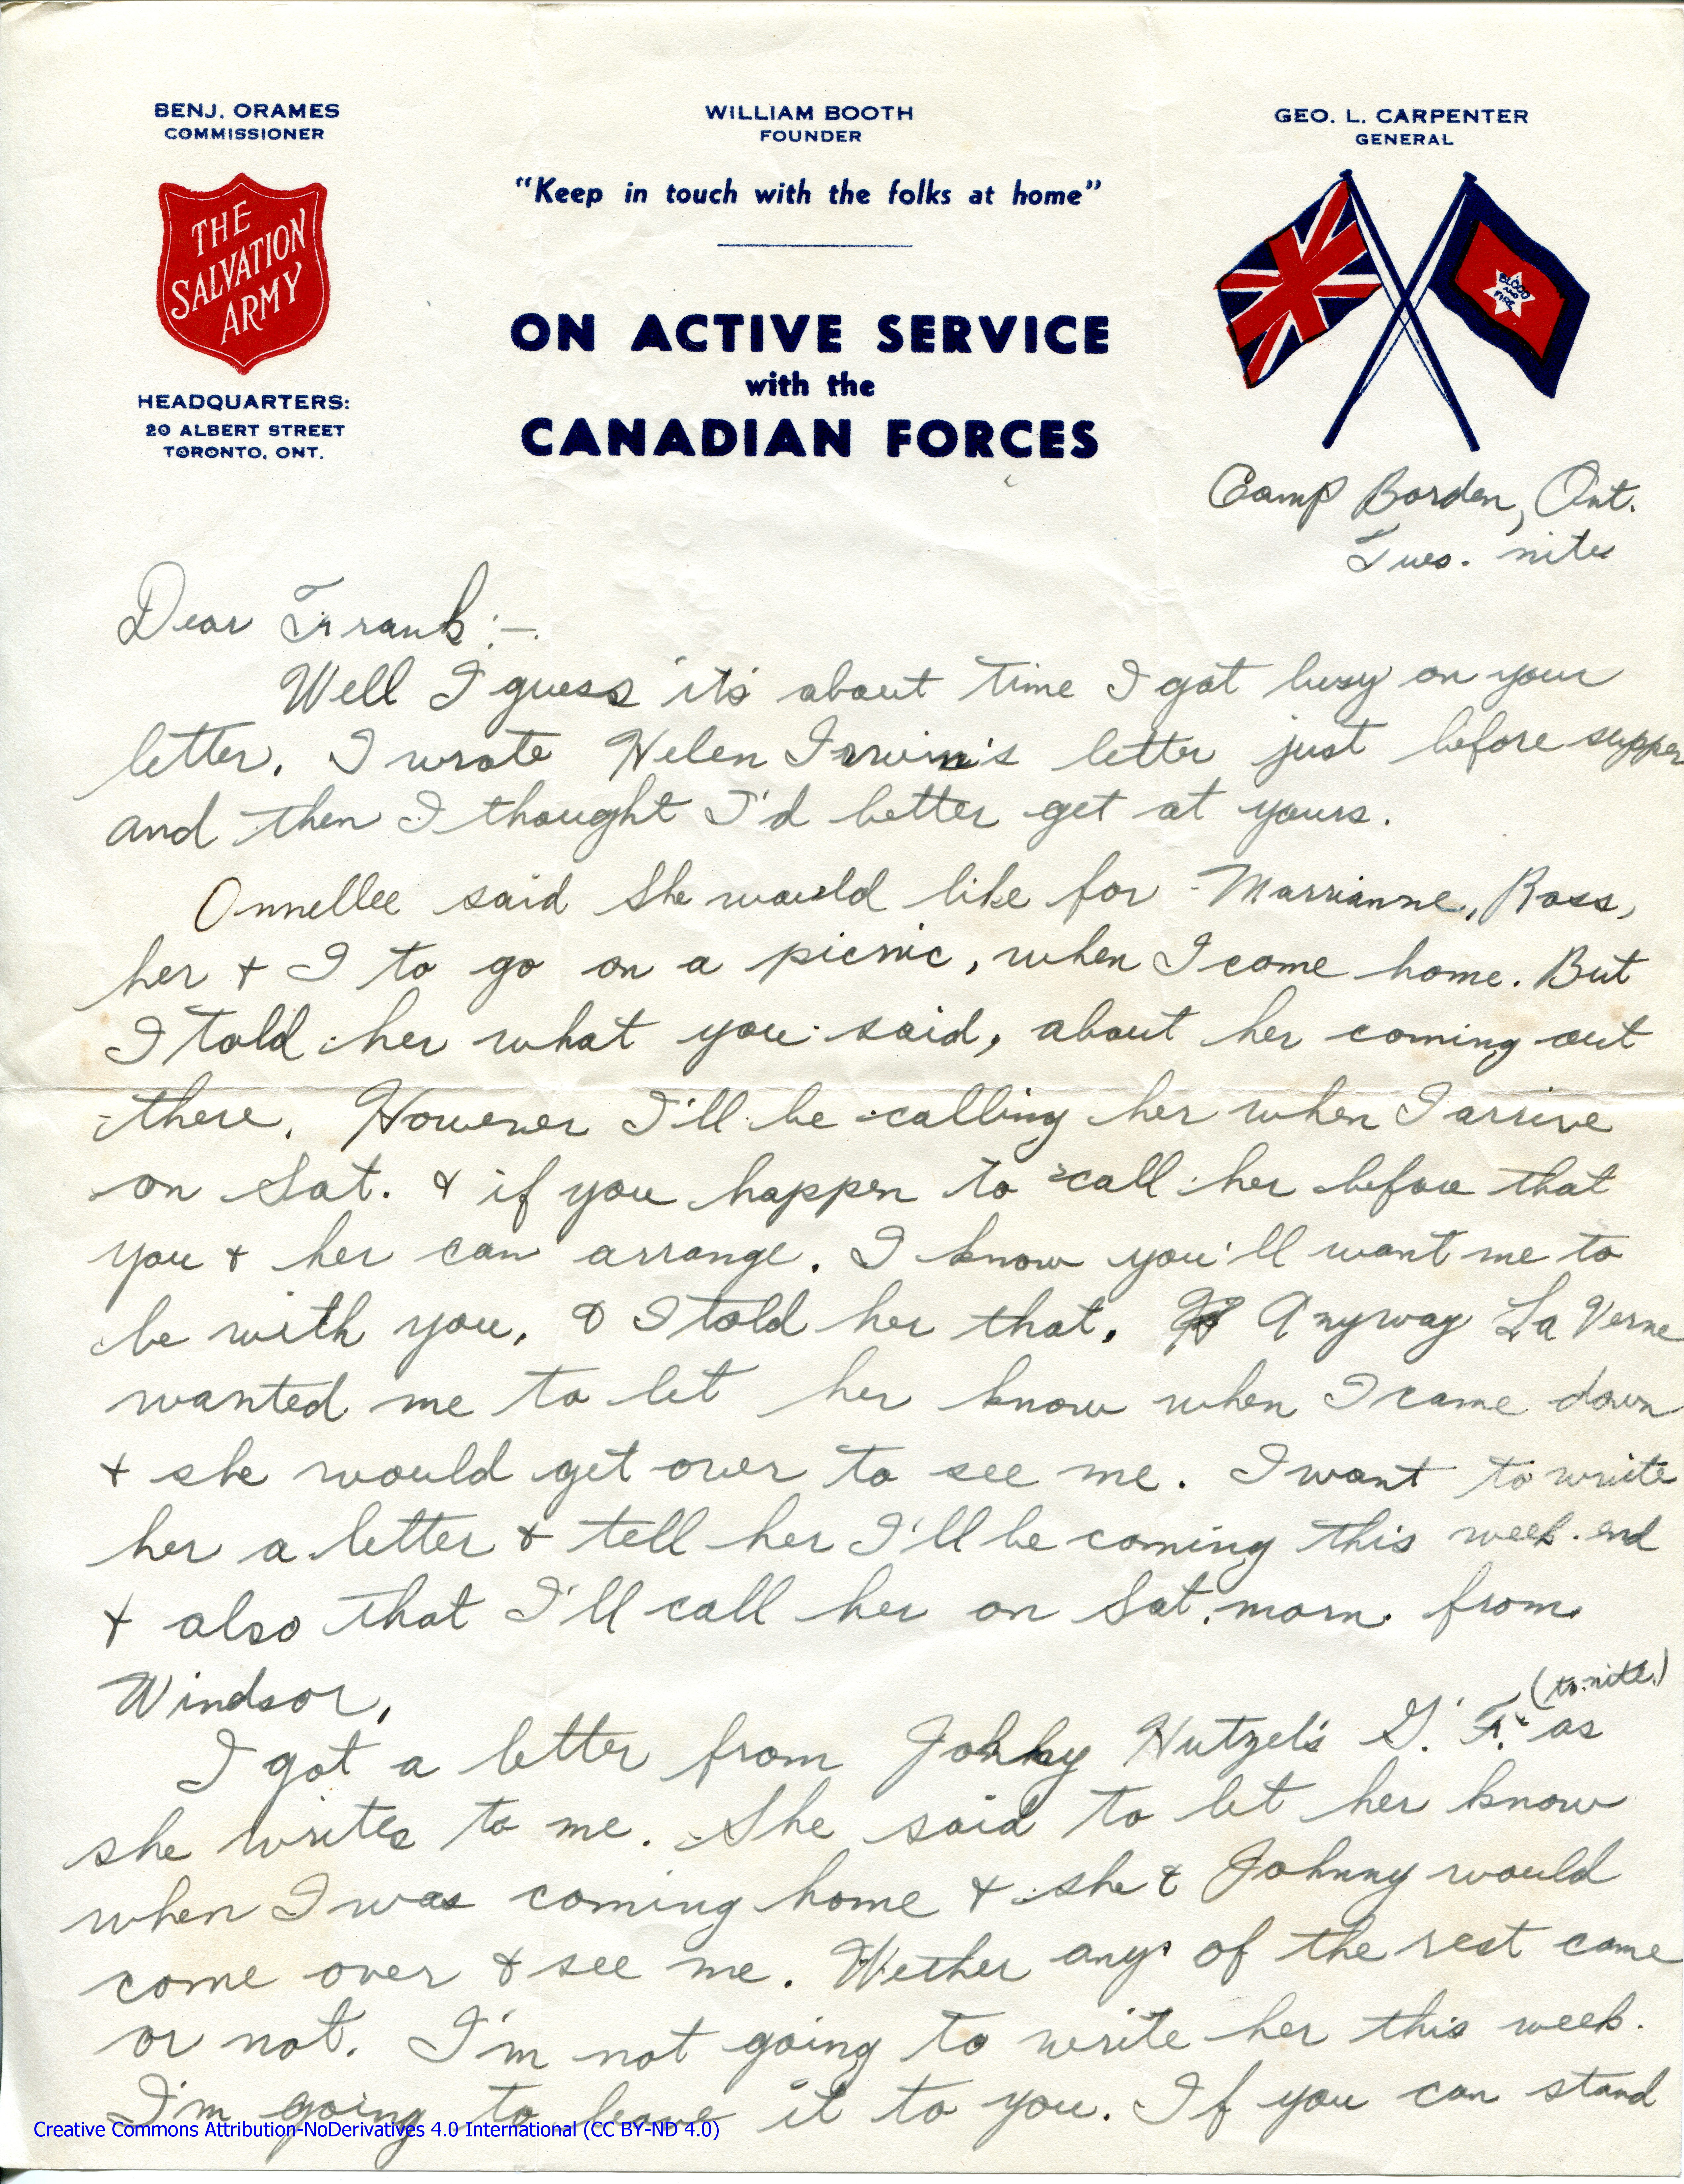 BENJ. ORAMES
COMMISSIONER
WILLIAM BOOTH
FOUNDER
GEO. L. CARPENTER
GENERAL
"Keep in touch with the folks at home"
THE
SALVATION
ARMY
BLOOD
AND
FIRE
ON ACTIVE SERVICE
with the
CANADIAN FORCES
HEADQUARTERS:
20 ALBERT STREET
TORONTO, ONT.
Camp Borden, Ont.
Tues. nite
Dear Frank:-
Well I guess it's about time I got busy on your
letter. I wrote Helen Irwin's letter just before supper
and then I thought I'd better get at yours.
Onnellee said she would like for Marrianne, Ross,
her + I to go on a picnic, when I come home. But
I told her what you said, about her coming out
there. However I'll be calling her when I arrive
on Sat. & if you happen to call her before that
you + her can arrange. I know you'll want me to
be with you, & I told her that. Anyway La Verne
wanted me to let her know when I came down
+ she would get over to see me. I want to write
her a letter & tell her I'll be coming this week-end
+ also that I'll call her on Sat. morn. from
Windsor.
I got a letter from Johhy Hutzel's G. F. (to-nite) as
she writes to me. She said to let her know
when I was coming home + she & Johnny would
come over & see me. Wether any of the rest came
or not. I'm not going to write her this week.
I'm going to leave it to you. If you can stand
Creative Commons Attribution-NoDerivatives 4.0 International (CC BY-ND 4.0)